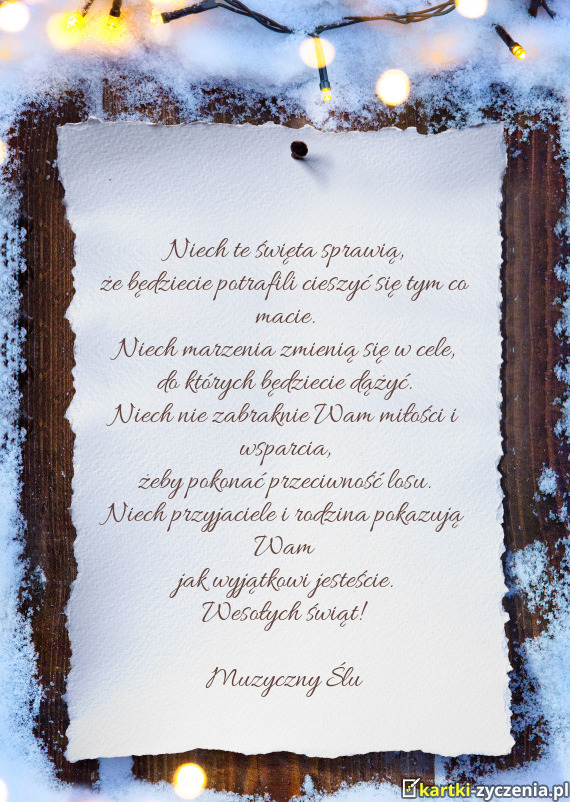 Niech te święta sprawią,
że będziecie potrafili cieszyć się tym co
macie.
Niech marzenia zmienią się w cele,
do których będziecie dążyć.
Niech nie zabraknie Wam miłości i
wsparcia,
żeby pokonać przeciwność losu.
Niech przyjaciele i rodzina pokazują
Wam
jak wyjątkowi jesteście.
Wesołych świąt!
Muzyczny Ślu
kartki-zyczenia.pl